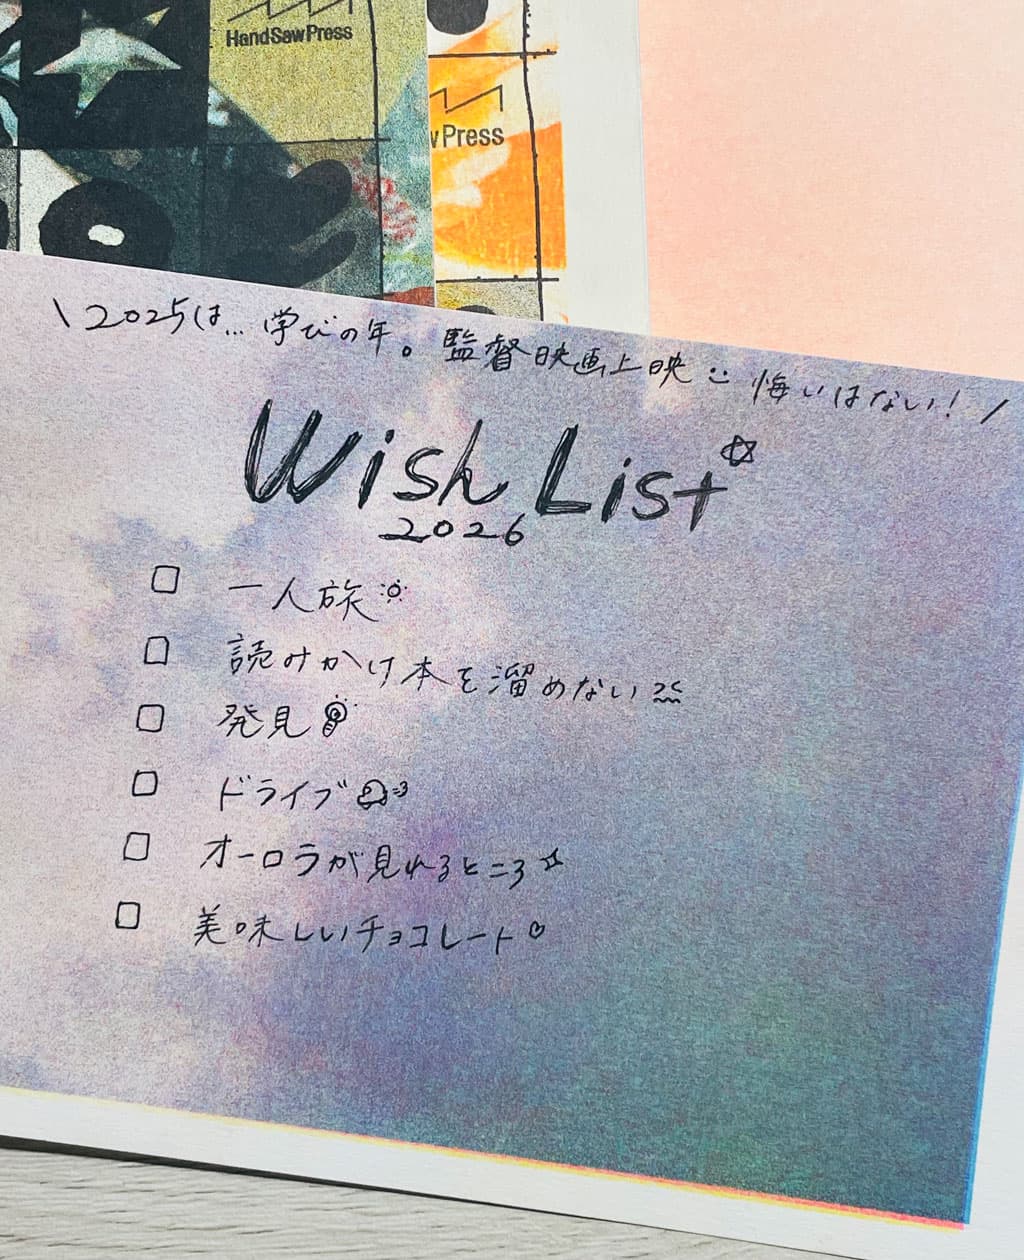 HandSawPress
wPress
\ 2025は... 学びの年。監督映画上映 悔いはない! /
Wish List
2026
一人旅
読みかけ本を溜めない
発見
ドライブ
オーロラが見れるところ
美味しいチョコレート